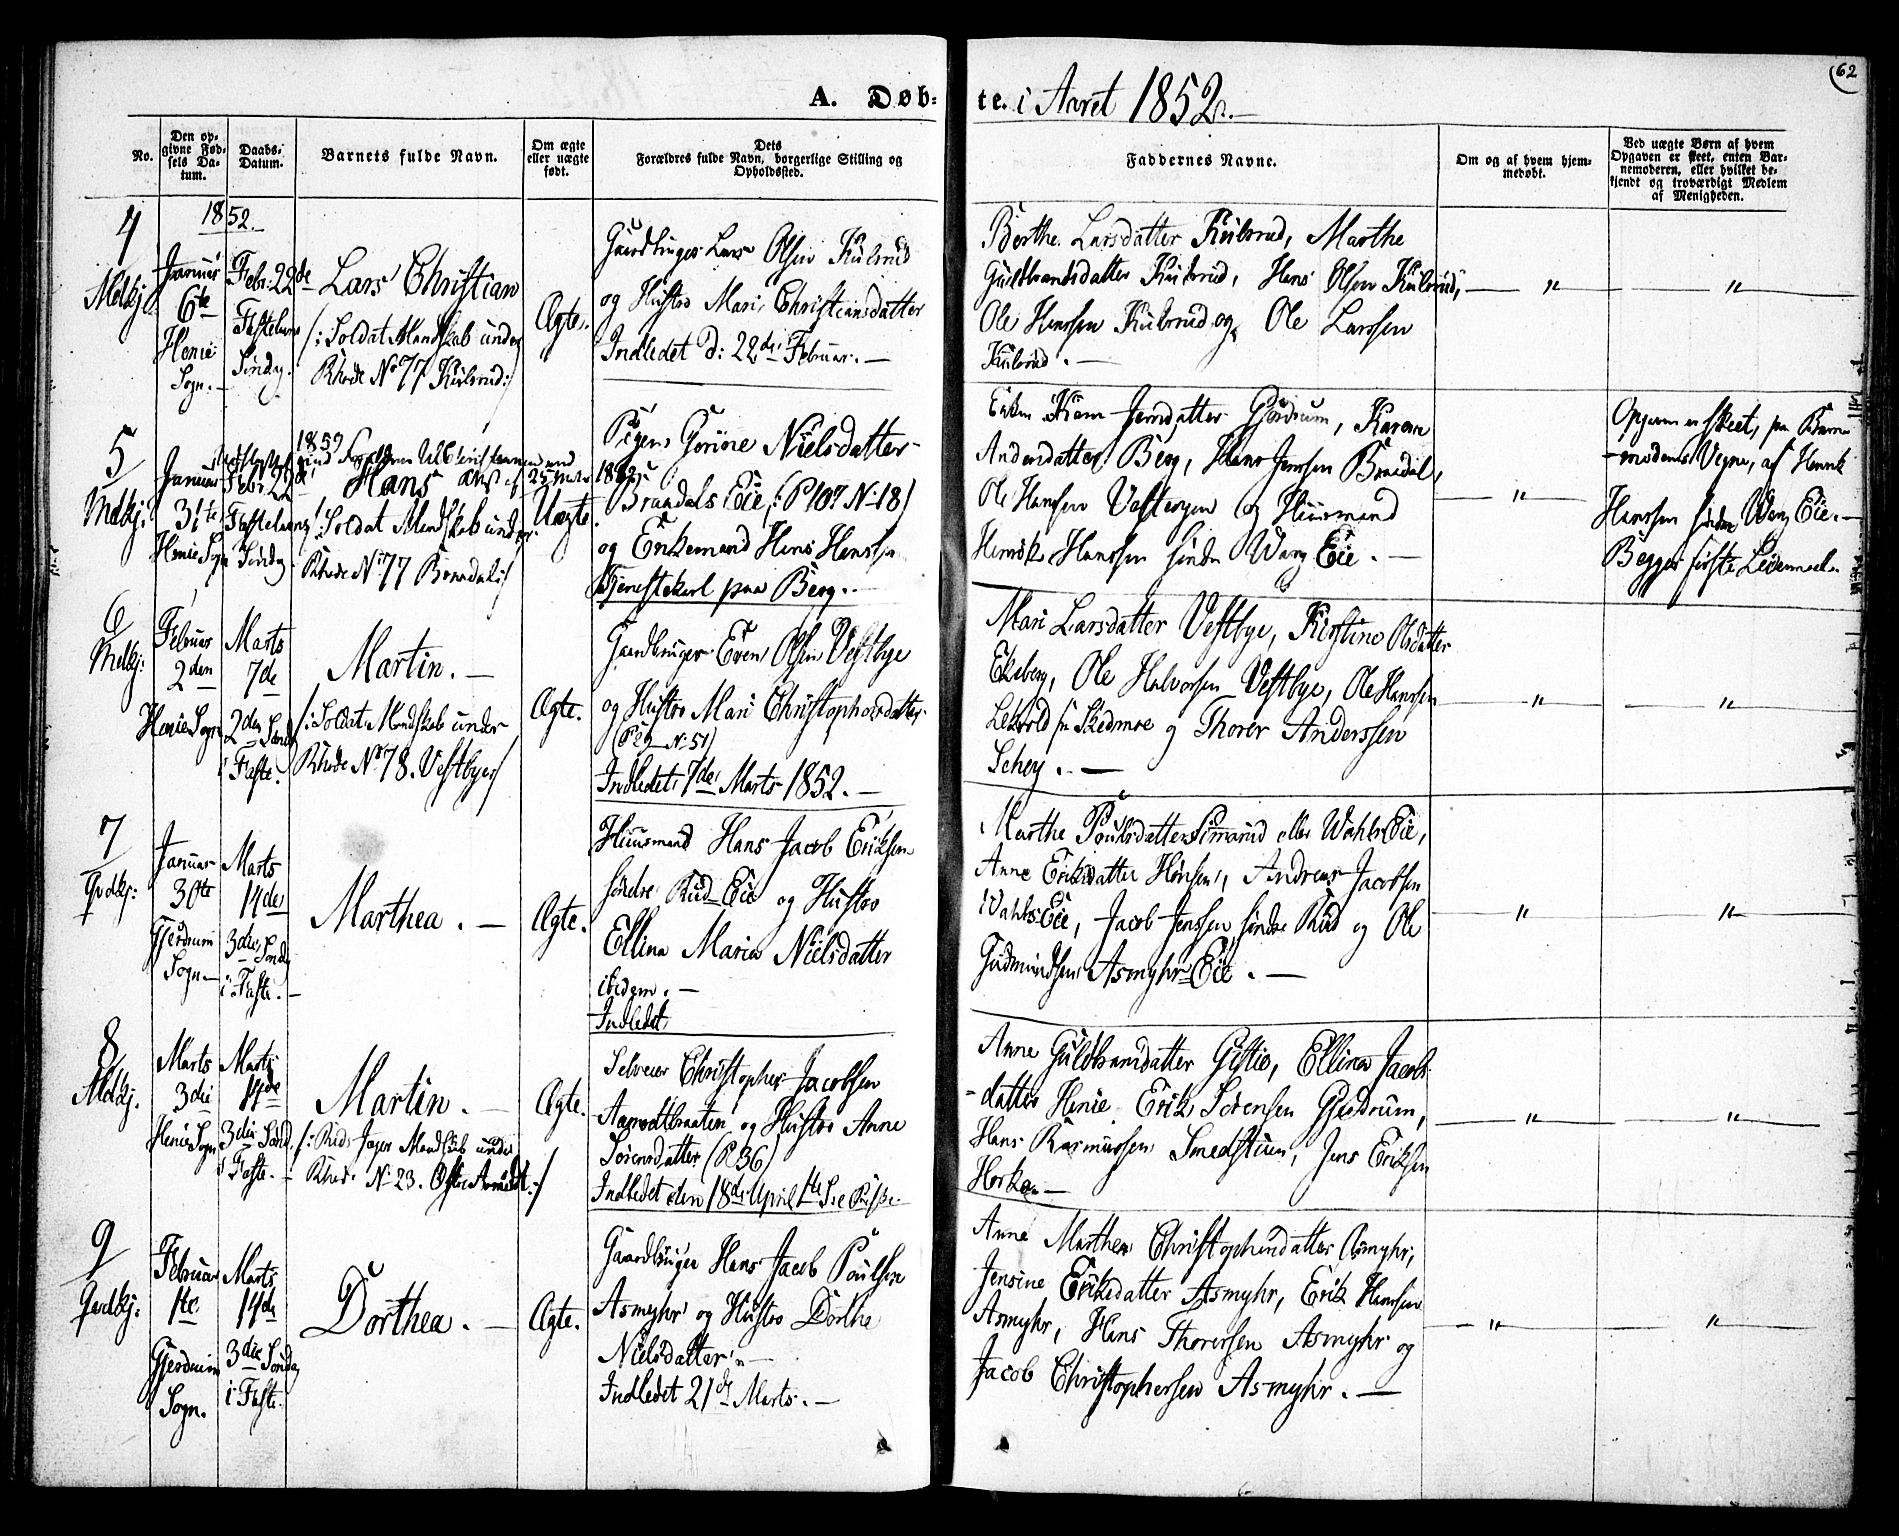 62
A. Døbte. i Aaret 1852.
No.
Den opgivne Fødsels Datum.
Daabs-Datum.
Barnets fulde Navn.
Om ægte eller uægte født.
Dets Forældres fulde Navn, borgerlige Stilling og Opholdssted.
Faddernes Navne.
Om og af hvem hjemmedøbt.
Ved uægte Børn af hvem Opgaven er skeet, enten Barnemoderen, eller hvilket bekjendt og troværdigt Medlem af Menigheden.
1852.
4
Mdkj:
Januar
6te
Henie
Sogn.
Febr: 22de
Fastelavns
Søndag.
Lars Christian
/: Soldat Mandskab under
Rhode No 77 Kulsrud:/
Ægte.
Gaardbruger Lars Olsen Kulsrud
og Hustro Mari Christiansdatter
Indledet d: 22de Februar. —
Berthe Larsdatter Kulsrud, Marthe
Guldbrandsdatter Kulsrud, Hans Olsen Kulsrud,
Ole Hanssen Kulsrud og Ole Larssen
Kulsrud. —
— " —
— " —
5
Mdkj:
Januar
31te
Henie Sogn
Febr. 22de
Fastelavns
Søndag
1859
Hans
/: Soldat Mandskab under
Rhode No 77 Brandal:/
Uægte.
Pigen Gorine Nielsdatter
Brandals Eie, (P 107 N: 18)
og Enkemand Hans Hanssen
Tjenestekarl paa Berg. —
Enken Karen Jensdatter Gjerdrum, Karen
Andersdatter Berg, Hans Jenssen Brandal,
Ole Hanssen Vestengen og Huusmand
Henrik Hanssen søndre Wang Eie. —
— " —
Opgaven er skeet, paa Barne-
moderens Vegne, af Henrik
Hanssen søndre Wang Eie. —
Begges første Leiermaal.
6
Mdkj:
Februar
2den
Henie Sogn
Marts
7de
2den Sønd.
i Faste.
Martin. —
/: Soldat Mandskab under
Rhode No 78. Vestbye:/
Ægte.
Gaardbruger Even Olsen Vestbye
og Hustro Mari Christophersdatter.
(P 29 N: 51)
Indledet 7de Marts 1852. —
Mari Larsdatter Vestbye, Kirstine Olsdatter
Ekeberg, Ole Halvorsen Vestbye, Ole Hanssen
fra Skedsmoe og Thorer Anderssen
Schøy. —
— " —
— " —
7
Gjerdkj:
Januar
30te
Gjerdrum
Sogn —
Marts
14de
3die Sønd.
i Faste. —
Marthea. —
Ægte.
Huusmand Hans Jacob Eriksen
søndre Rud Eie og Hustro
Ellina Maria Nielsdatter
ibidem. —
Indledet
Marthe Poulsdatter Simarud eller Wahls Eie,
Anne Eriksdatter Hønsen, Andreas Jacobsen
Wahls Eie, Jacob Jenssen søndre Rud og Ole
Gudmundsen Asmyhr Eie. —
— " —
— " —
8
Mdkj.
Marts
3die
Henie Sogn
Marts
14de
3die Sønd.
i Faste. —
Martin. —
/: Rid. Jæger Mandskab under
Rhode No 23. :/
Ægte.
Selveier Christopher Jacobsen
og Hustro Anne
Sørensdatter (P 36)
Indledet den 18de April 1ste S. e. Paaske.
Anne Guldbrandsdatter Gistie, Ellina Jacobs-
datter Henie Erik Sørensen Gjerdrum,
Hans Rasmussen Smedstuen, Jens Eriksen
—
— " —
— " —
9
Gjerdkj:
Februar
1te.
Gjerdrum
Sogn.
Marts
14de
3die Søndag
i Faste.
Dorthea. —
Ægte.
Gaardbruger Hans Jacob Poulsen
Asmyhr og Hustro Dorthe
Nielsdatter. —
Indledet 21de Marts. —
Anne Marthea Christophersdatter Asmyhr,
Jensine Eriksdatter Asmyhr, Erik Hanssen
Asmyhr, Hans Thorersen Asmyhr og
Jacob Christophersen Asmyhr. —
— " —
— " —